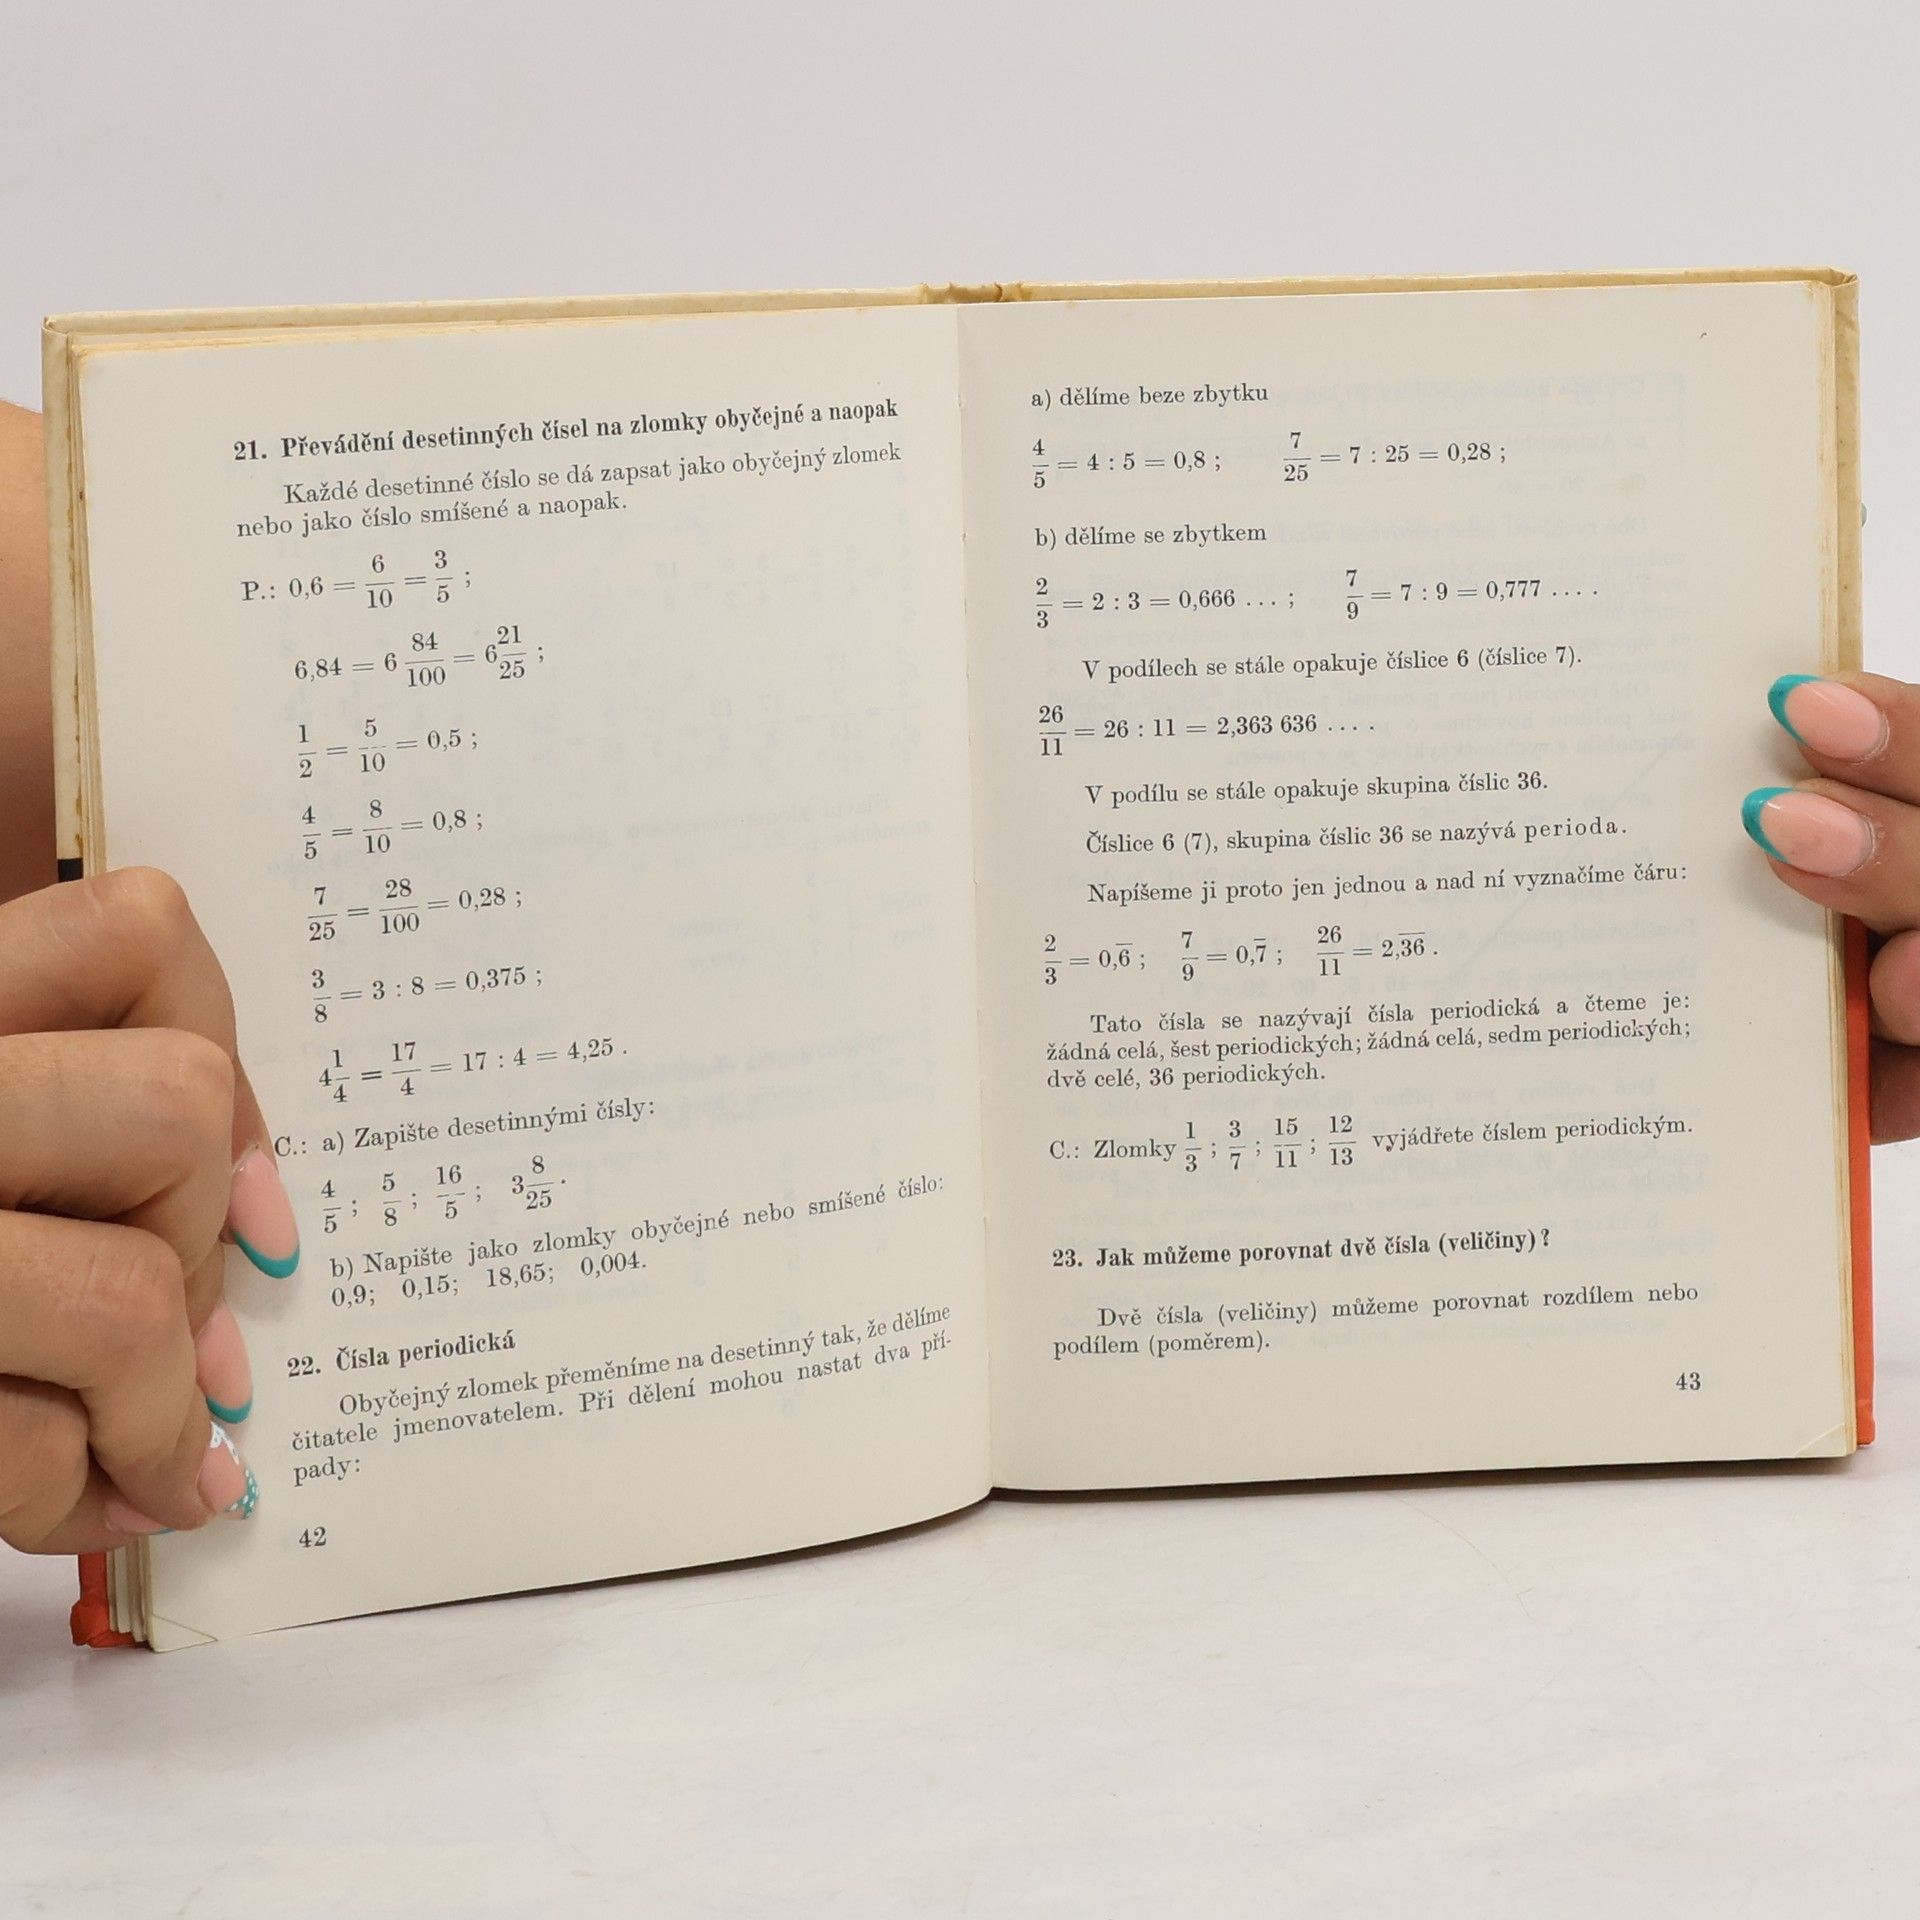 21. Převádění desetinných čísel na zlomky obyčejné a naopak
Každé desetinné číslo se dá zapsat jako obyčejný zlomek
nebo jako číslo smíšené a naopak.
P.: 0,6 = 6/10 = 3/5 ;
6,84 = 6 84/100 = 6 21/25 ;
1/2 = 5/10 = 0,5 ;
4/5 = 8/10 = 0,8 ;
7/25 = 28/100 = 0,28 ;
3/8 = 3 : 8 = 0,375 ;
4 1/4 = 17/4 = 17 : 4 = 4,25 .
C.: a) Zapište desetinnými čísly:
4/5 ; 5/8 ; 16/5 ; 3 8/25 .
b) Napište jako zlomky obyčejné nebo smíšené číslo:
0,9; 0,15; 18,65; 0,004.
22. Čísla periodická
Obyčejný zlomek přeměníme na desetinný tak, že dělíme
čitatele jmenovatelem. Při dělení mohou nastat dva pří-
pady:
42
a) dělíme beze zbytku
4/5 = 4 : 5 = 0,8 ; 7/25 = 7 : 25 = 0,28 ;
b) dělíme se zbytkem
2/3 = 2 : 3 = 0,666 ... ; 7/9 = 7 : 9 = 0,777 ....
V podílech se stále opakuje číslice 6 (číslice 7).
26/11 = 26 : 11 = 2,363 636 ....
V podílu se stále opakuje skupina číslic 36.
Číslice 6 (7), skupina číslic 36 se nazývá perioda.
Napíšeme ji proto jen jednou a nad ní vyznačíme čáru:
2/3 = 0,6̅ ; 7/9 = 0,7̅ ; 26/11 = 2,3̅6̅ .
Tato čísla se nazývají čísla periodická a čteme je:
žádná celá, šest periodických; žádná celá, sedm periodických;
dvě celé, 36 periodických.
C.: Zlomky 1/3 ; 3/7 ; 15/11 ; 12/13 vyjádřete číslem periodickým.
23. Jak můžeme porovnat dvě čísla (veličiny)?
Dvě čísla (veličiny) můžeme porovnat rozdílem nebo
podílem (poměrem).
43